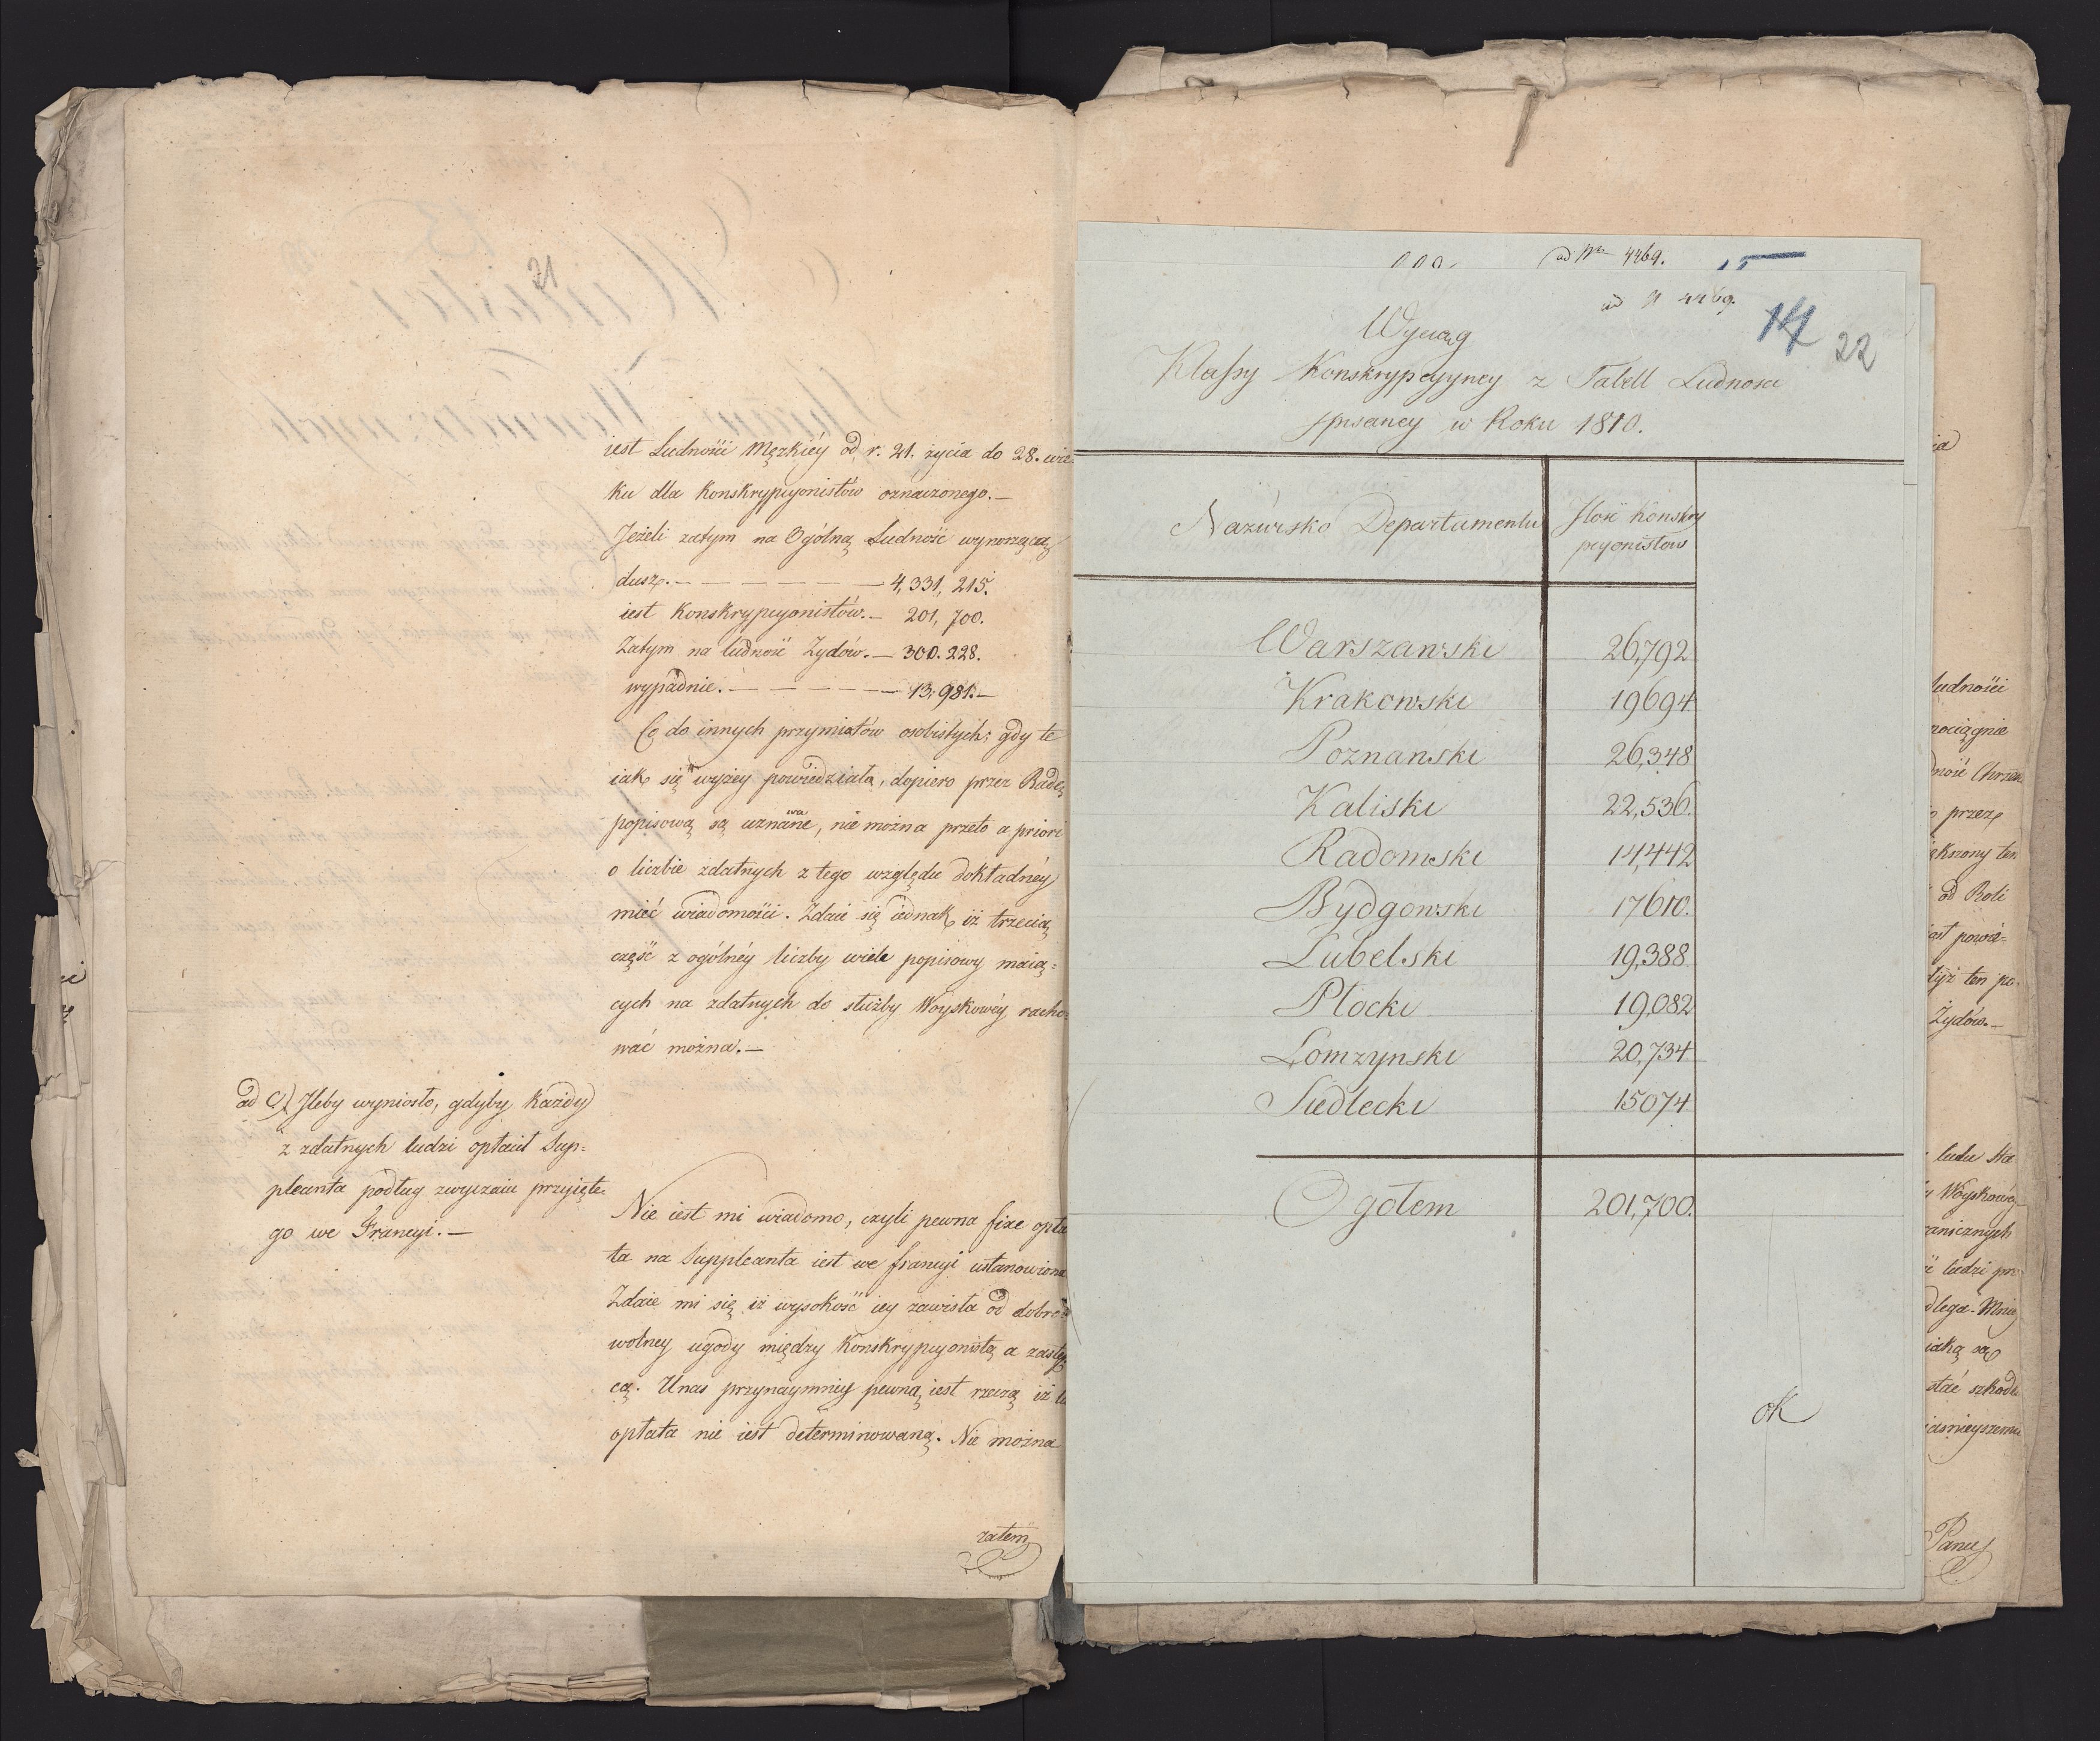 21
iest Ludności Męzkiéy od r. 21. życia do 28. wie
ku dla Konskrypcyonistów oznaczonego.—
Jeżeli zatym na Ogólną Ludność wynoszącą
dusz.— — — — — — — 4,331,215.
iest Konskrypcyonistów.— 201,700.
Zatym na ludność Żydów.— 300.228.
wypadnie.— — — — — — 13,981.—
Co do innych przymiotów osobistych; gdy te
iak się wyżey powiedziało, dopiero przez Radę
popisową są uznane, nie można przeto a priori
o liczbie zdatnych z tego względu dokładnéy
mieć wiadomości. Zdaie się iednak iż trzecią
część z ogólnéy liczby wiele popisowy maią=
cych na zdatnych do służby Woyskowéy racho=
wać można.—
ad C) Jleby wyniosło, gdyby każdy
z zdatnych ludzi opłacił Sup=
pleanta podług zwyczaiu przyięte=
go we Francyi.—
Nie iest mi wiadomo, czyli pewna fixe opła
ta na Suppleanta iest we francyi ustanowiona
Zdaie mi się iż wysokość iey zawisła od dobro=
wolney ugody między Konskrypcyonistą a zastęp
cą. Unas przynaymniey pewną iest rzeczą iż ta
opłata nie iest determinowaną. Nie można
zatem
ad Nr 4469.
15
ad N 4469.
14
22
Wyciąg
Klassy Konskrypcyyney z Tabell Ludności
spisaney w Roku 1810.
Nazwisko Departamentu Jlość Konskry
pcyonistow
Warszawski 26,792
Krakowski 19694
Poznanski 26,348
Kaliski 22,536.
Radomski 14,442
Bydgowski 17610.
Lubelski 19,388.
Płocki 19,082
Lomzynski 20,734
Siedlecki 15074
Ogołem 201,700.
ok
ludności
rociągnie
przez
od Roli
ten po=
Żydów.—
ludzi
szkode
Panu